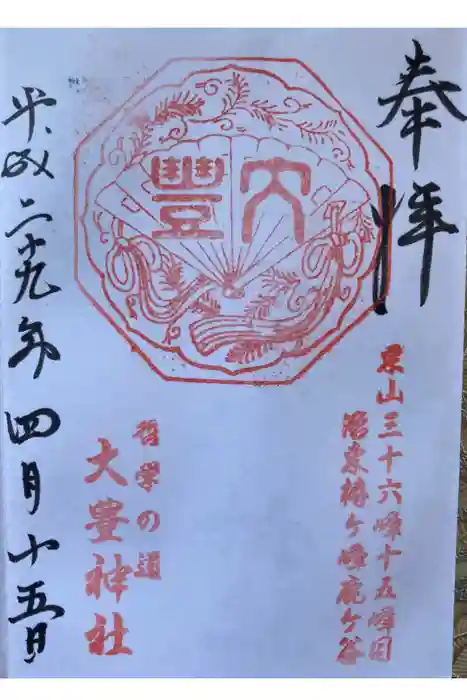 奉拝
東山三十六峰十五峰目
洛東椿ケ峰鹿ケ谷
大豊
哲学の道
大豊神社
平成二十九年四月十五日